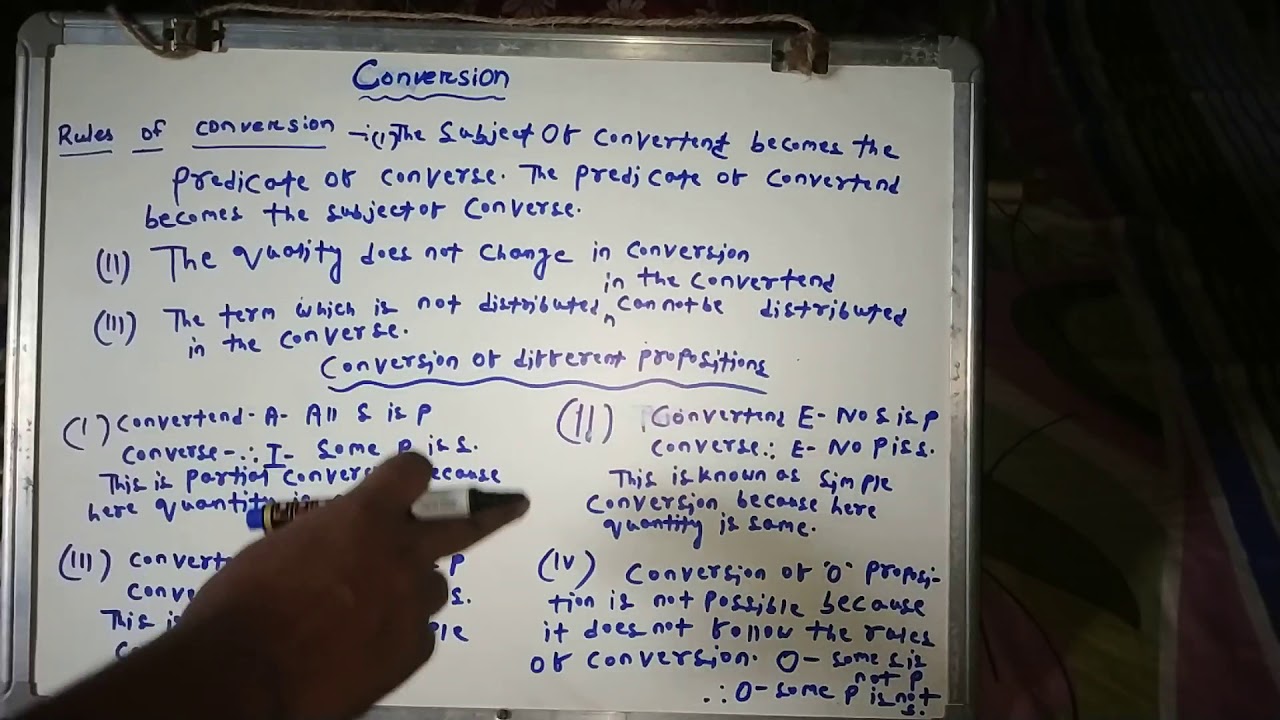 Conversion
Rules of conversion -:(I) The Subject Of Convertend becomes the
predicate of converse. The predicate of convertend
becomes the subject of Converse.
(II) The quality does not change in conversion
in the convertend
(III) The term which is not distributed ^ cannot be distributed
in the converse.
Conversion of different propositions
(I) Convertend - A - All S is P
Converse - ∴ I - Some P is S.
This is partial convers because
here quantity is
(II) Convertend E - No S is P
Converse ∴ E - No P is S.
This is known as simple
Conversion because here
quantity is same.
(III) Convert P
Conve S.
This is ple
Co
(IV) Conversion of 'O' proposi-
tion is not possible because
it does not follow the rules
of conversion. O - some s is
not p
∴ O - some p is not
s.